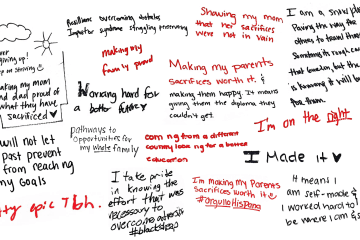 Resilience overcoming
Imposter syndrome struggling
making my
family proud
Showing my mom
that her sacrifices
were not in vain
I am a
Paving the way for
others to
making my mom
and dad proud of
what they have
sacrificed
Working hard for
a better future
Making my parents
sacrifices worth it. &
making them happy. It means
giving them the diploma they
couldn't get.
I'm on the right
will not let
past prevent
from reaching
my goals
pathways to
opportunities for
my whole family
coming from a different
country looking for a better
education
I Made it
tty epic Tbh.
I take pride
in knowing the
effort that was
necessary to
overcome
I'm making my Parents
sacrifices worth it
It means I
am self-made &
I worked hard to
be where I am